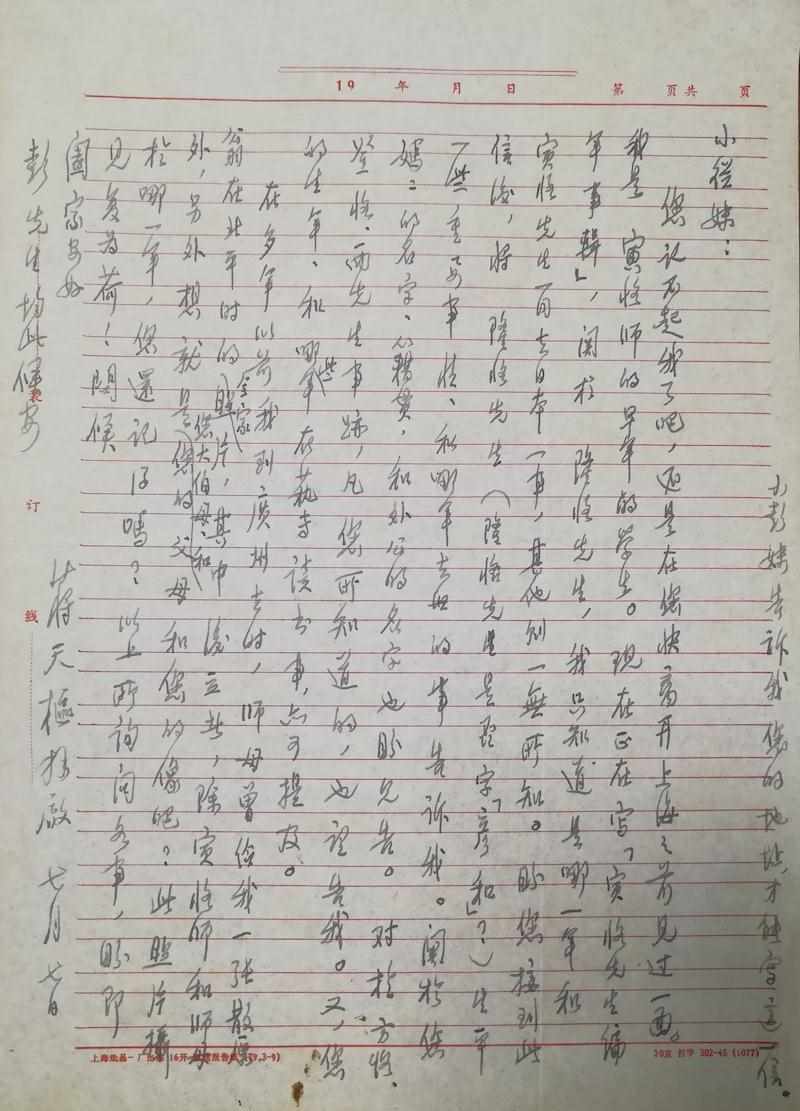 19　年　月　日　第　页共　页
小彭妹告诉我您的地址,才能写这一信。
小从妹：
您记不起我了吧,还是在您快离开上海之前见过一面。
我是 寅恪师的早年的学生。现在正在写「寅恪先生编
年事辑」,关于 隆恪先生,我只知道是哪一年和
寅恪先生一同去日本一事,其他则一无所知。盼您接到此
信后,将 隆恪先生(隆恪先生是否字「彦和」?)生平
一些重要事情、和哪年去世的事告诉我。关于您
妈妈的名字、籍贯,和外公的名字也盼见告。对于方恪、
登恪、两先生事跡,凡您所知道的,也望告我。又,您
的生年、和哪些年在 读书事,亦可提及。
在多年以前我到广州去时,师母曾给我一张散原
翁在北平时的(全家)照片,其中 后立者,除寅恪师和师母
外,另外想就是(您大伯母和)您的父母和您的像吧?此照片摄
于哪一年,您还记得吗?以上所询问各事,盼即
见复为荷!问候
阖家安好
彭先生均此候安
蒋天枢拜启 七月七日
订
线
16开